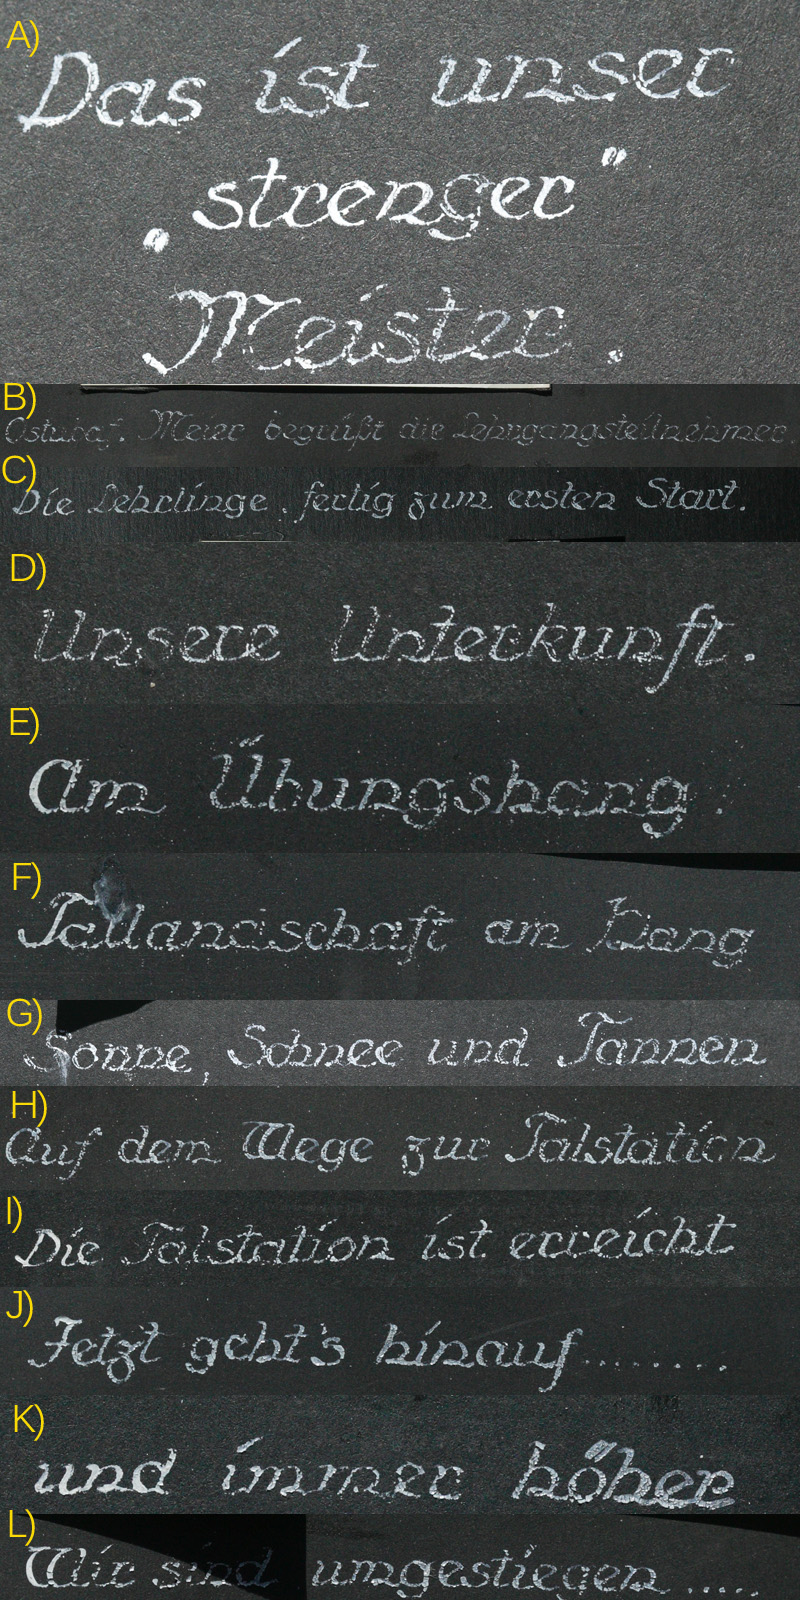 A)
Das ist unser
„strenger"
Meister.
B)
Ostubaf. Meier begrüßt die Lehrgangsteilnehmer.
C)
Die Lehrlinge . fertig zum ersten Start.
D)
Unsere Unterkunft.
E)
Am Übungshang.
F)
Tallandschaft am Hang
G)
Sonne, Schnee und Tannen
H)
Auf dem Wege zur Talstation
I)
Die Talstation ist erreicht
J)
Jetzt geht's hinauf........
K)
und immer höher
L)
Wir sind umgestiegen.....